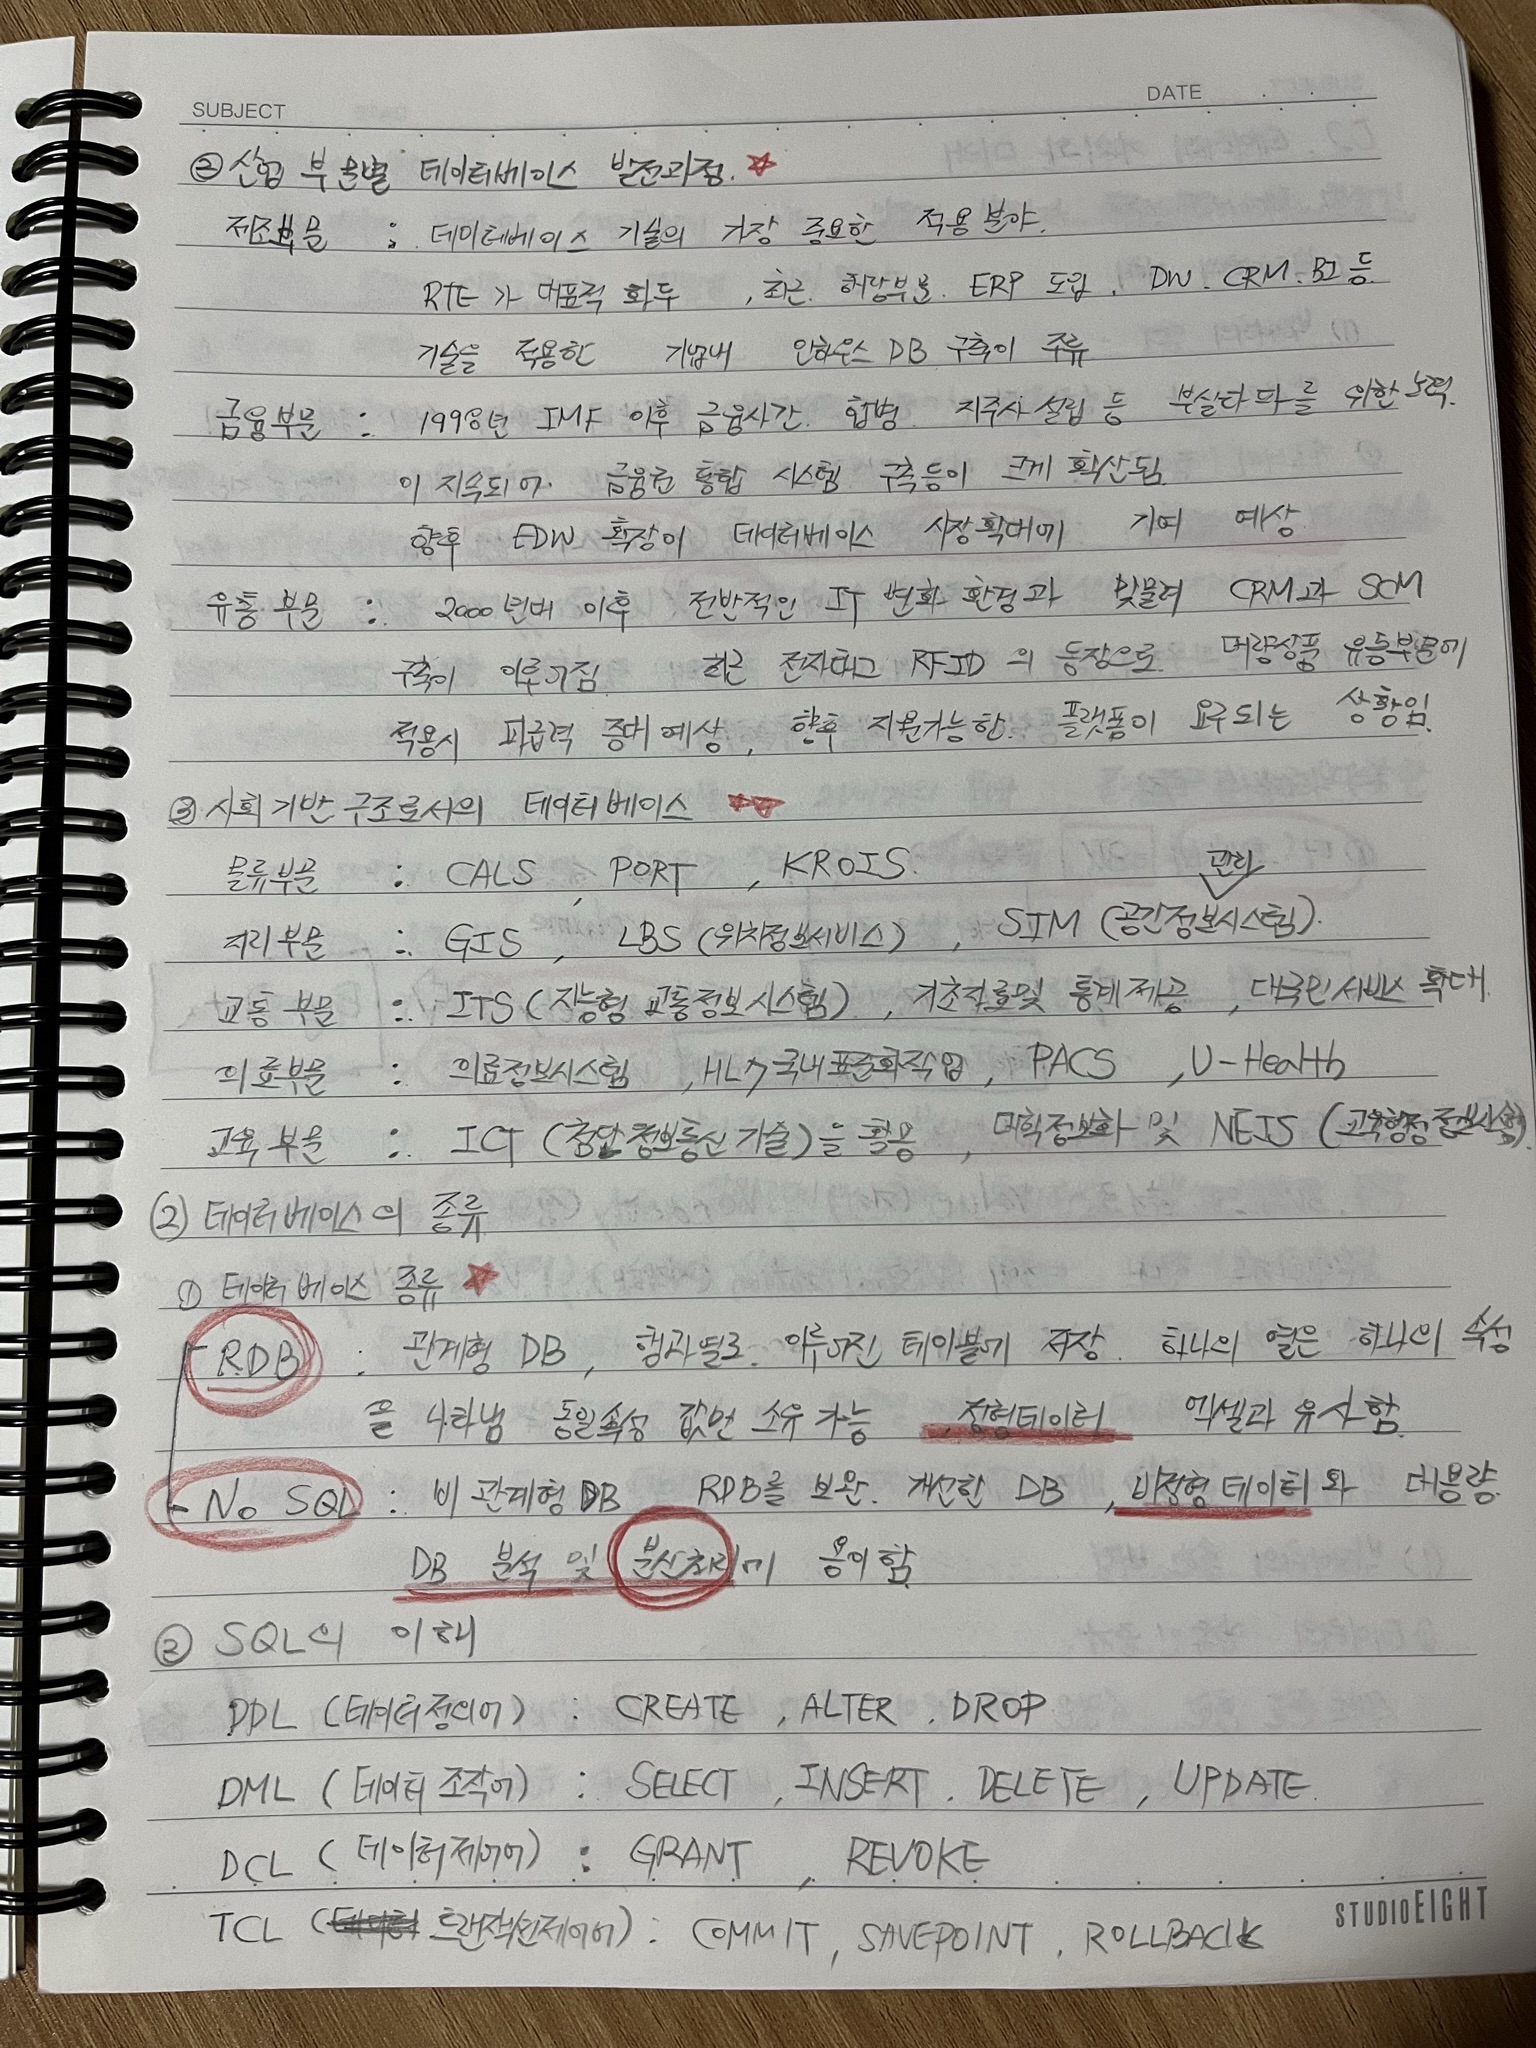 SUBJECT
DATE
② 산업 부문별 데이터베이스 발전과정.
제조부문 : 데이터베이스 기술의 가장 중요한 적용분야.
RTE가 대표적 화두, 최근 해당부문. ERP 도입, DW. CRM. BI 등
기술을 적용한 기업내 인하우스 DB 구축이 주류
금융부문 : 1998년 IMF 이후 금융사간. 합병. 지주사 설립 등 부실타파를 위한 노력.
이 지속되어. 금융권 통합 시스템 구축등이 크게 확산됨
향후 EDW 확장이 데이터베이스 시장확대에 기여 예상.
유통 부문 : 2000년대 이후 전반적인 IT 변화 환경과 맞물려 CRM과 SCM
구축이 이루어짐. 최근 전자태그 RFID의 등장으로. 대량상품 유통부문에
적용시 파급력 증대 예상, 향후 지원가능한. 플랫폼이 요구되는 상황임.
③ 사회기반구조로서의 데이터베이스
물류부문 : CALS, PORT, KROIS.
관리
지리부문 : GIS, LBS (위치정보서비스), SIM (공간정보시스템).
교통 부문 : ITS (지능형 교통정보시스템), 기초자료및 통계제공, 대국민서비스 확대.
의료부문 : 의료정보시스템, HL7 국내표준화작업, PACS, U-Health
교육 부문 : ICT (첨단정보통신기술)을 활용, 대학정보화 및 NEIS (교육행정정보시스템)
(2) 데이터베이스의 종류
① 데이터베이스 종류
RDB : 관계형 DB, 행과열로. 이루어진 테이블에 저장. 하나의 열은 하나의 속성
을 나타냄 동일속성 값만 소유가능, 정형데이터 엑셀과 유사함.
No SQL : 비관계형 DB RDB를 보완. 개선한 DB, 비정형데이터와 대용량
DB 분석 및 분산처리에 용이함
② SQL의 이해
DDL (데이터정의어) : CREATE, ALTER. DROP
DML (데이터 조작어) : SELECT, INSERT. DELETE, UPDATE.
DCL (데이터제어어) : GRANT, REVOKE
TCL (트랜잭션제어어) : COMMIT, SAVEPOINT, ROLLBACK
STUDIO EIGHT